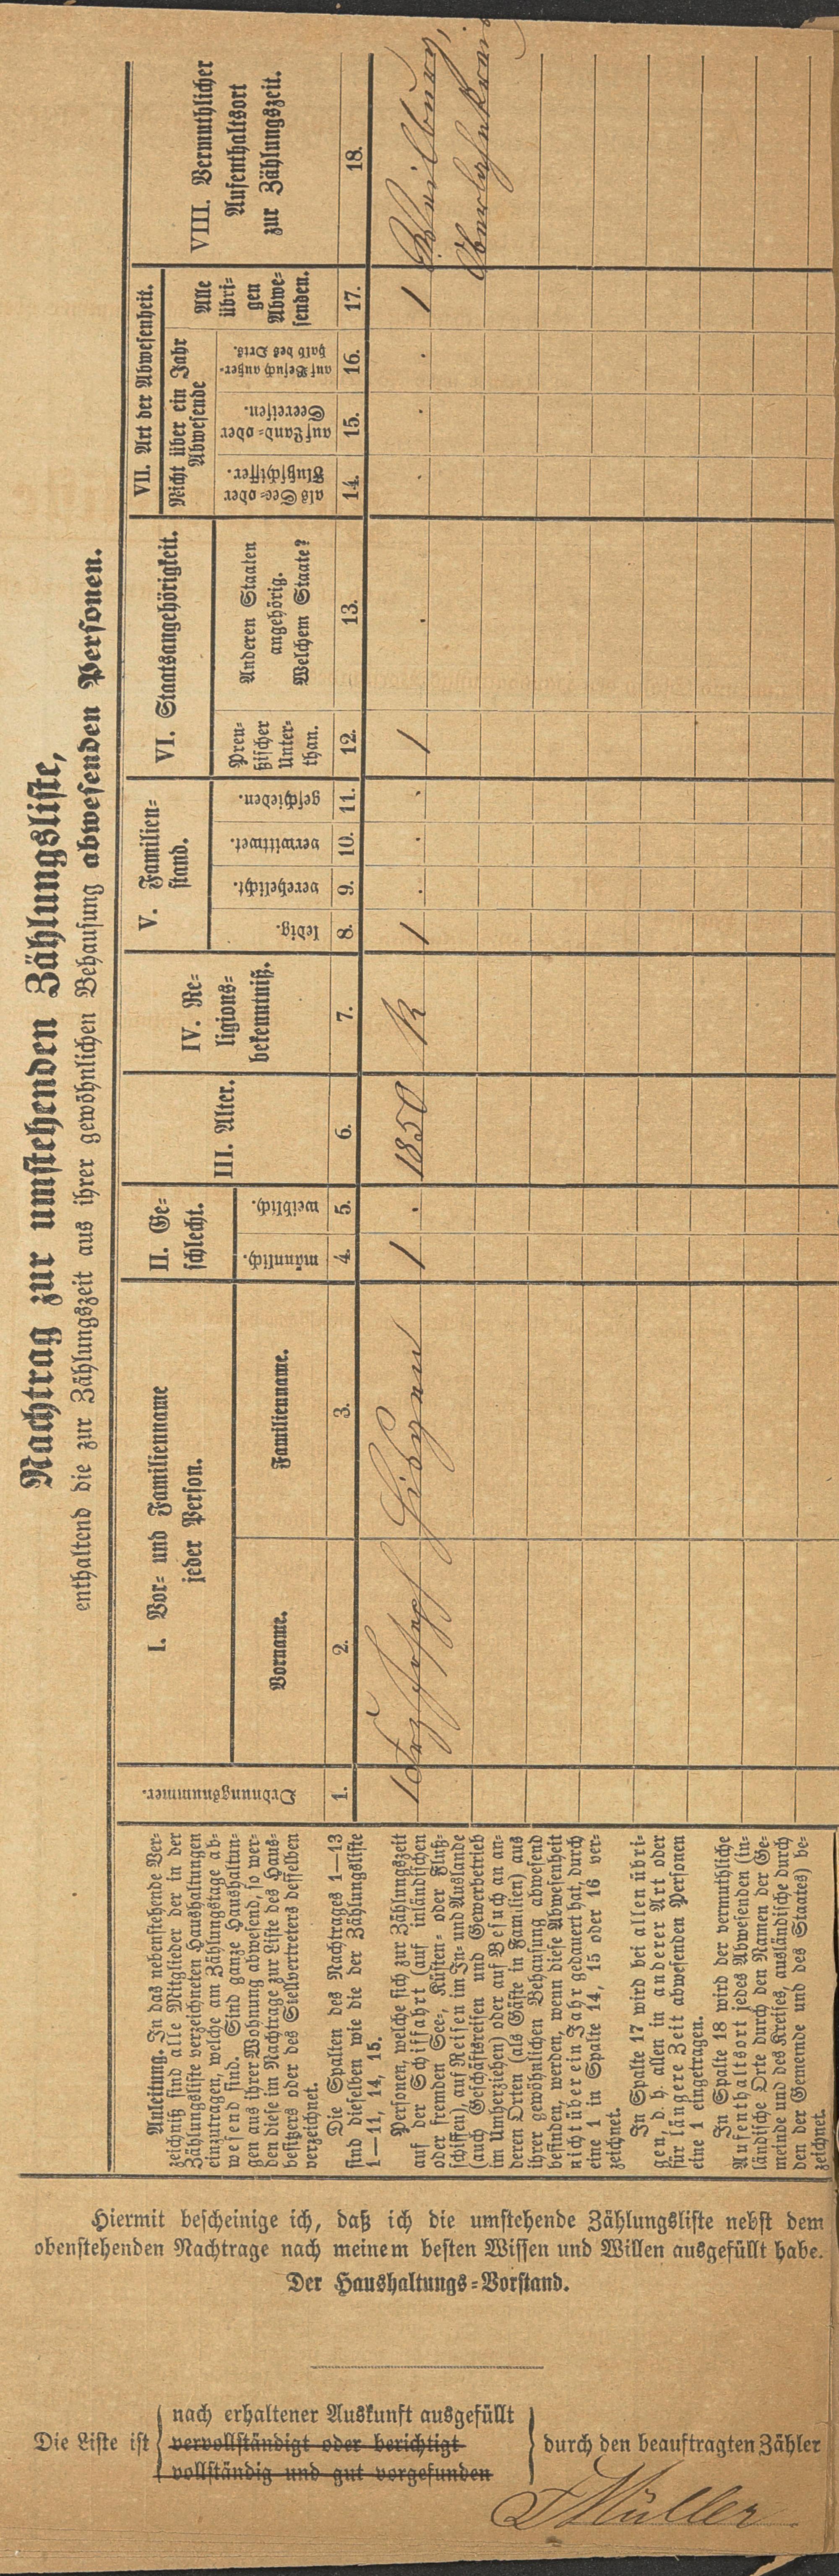 Nachtrag zur umstehenden Zählungsliste,
enthaltend die zur Zählungszeit aus ihrer gewöhnlichen Behausung abwesenden Personen.
Anleitung. In das nebenstehende Ver-
zeichniß sind alle Mitglieder der in der
Zählungsliste verzeichneten Haushaltungen
einzutragen, welche am Zählungstage ab-
wesend sind. Sind ganze Haushaltun-
gen aus ihrer Wohnung abwesend, so wer-
den diese im Nachtrage zur Liste des Haus-
besitzers oder des Stellvertreters desselben
verzeichnet.
Die Spalten des Nachtrages 1—13
sind dieselben wie die der Zählungsliste
1—11, 14, 15.
Personen, welche sich zur Zählungszeit
auf der Schiffahrt (auf inländischen
oder fremden See-, Küsten- oder Fluß-
schiffen), auf Reisen im In- und Auslande
(auch Geschäftsreisen und Gewerbetrieb
im Umherziehen) oder auf Besuch an an-
deren Orten (als Gäste in Familien) aus
ihrer gewöhnlichen Behausung abwesend
befinden, werden, wenn diese Abwesenheit
nicht über ein Jahr gedauert hat, durch
eine 1 in Spalte 14, 15 oder 16 ver-
zeichnet.
In Spalte 17 wird bei allen übri-
gen, d. h. allen in anderer Art oder
für längere Zeit abwesenden Personen
eine 1 eingetragen.
In Spalte 18 wird der vermuthliche
Aufenthaltsort jedes Abwesenden (in-
ländische Orte durch den Namen der Ge-
meinde und des Kreises, ausländische durch
den der Gemeinde und des Staates) be-
zeichnet.
Ordnungsnummer.
I. Vor- und Familienname
jeder Person.
Vorname.
Familienname.
II. Ge-
schlecht.
männlich.
weiblich.
III. Alter.
IV. Re-
ligions-
bekenntniß.
V. Familien-
stand.
ledig.
verehelicht.
verwittwet.
geschieden.
VI. Staatsangehörigkeit.
Preu-
ßischer
Unter-
than.
Anderen Staaten
angehörig.
Welchem Staate?
VII. Art der Abwesenheit.
Nicht über ein Jahr
Abwesende
als See- oder
Flußschiffer.
auf Land- oder
Seereisen.
auf Besuch außer-
halb des Orts.
Alle
übri-
gen
Abwe-
senden.
VIII. Vermuthlicher
Aufenthaltsort
zur Zählungszeit.
1. 2. 3. 4. 5. 6. 7. 8. 9. 10. 11. 12. 13. 14. 15. 16. 17. 18.
1 Joseph 1 . 1850 K 1 . . . 1 . . . . 1 Weilburg,
Oberlahnkreis
Hiermit bescheinige ich, daß ich die umstehende Zählungsliste nebst dem
obenstehenden Nachtrage nach meinem besten Wissen und Willen ausgefüllt habe.
Der Haushaltungs-Vorstand.
Die Liste ist
nach erhaltener Auskunft ausgefüllt
vervollständigt oder berichtigt
vollständig und gut vorgefunden
durch den beauftragten Zähler
Müller